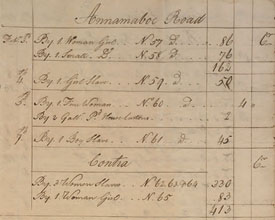 Annamaboe Road
By 1 Woman Girl N. 57 D. 86
By 1 Female D. N. 58 D. 76
162
By 1 Girl Slave N. 59 D 50
By 1 Fine Woman No 60 D 4
By 2 Gall. 2
By 1 Boy Slave N 61 D 45
Contra
By 3 Women Slaves No 62, 63 & 64 330
By 1 Woman Girl N. 65 83
413